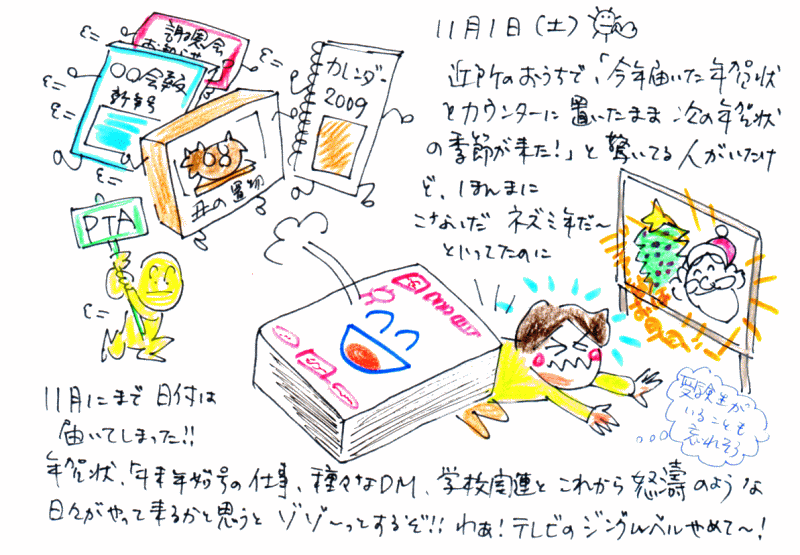 11月1日(土)
近所のおうちで、「今年届いた年賀状
をカウンターに置いたまま 次の年賀状
の季節が来た!」と驚いてる人がいたけ
ど、ほんまに
こないだ ネズミ年だ〜
といってたのに
謝恩会
お知らせ
〇〇会報
新年号
カレンダー
2009
丑の置物
PTA
受験生が
いることも
忘れそう
11月にまで 日付は
届いてしまった!!
年賀状、年末年始号の仕事、種々なDM、学校関連と これから 怒濤のような
日々がやって来るかと思うと ゾゾ〜っとするぞ!! わぁ!テレビのジングルベルやめて〜!